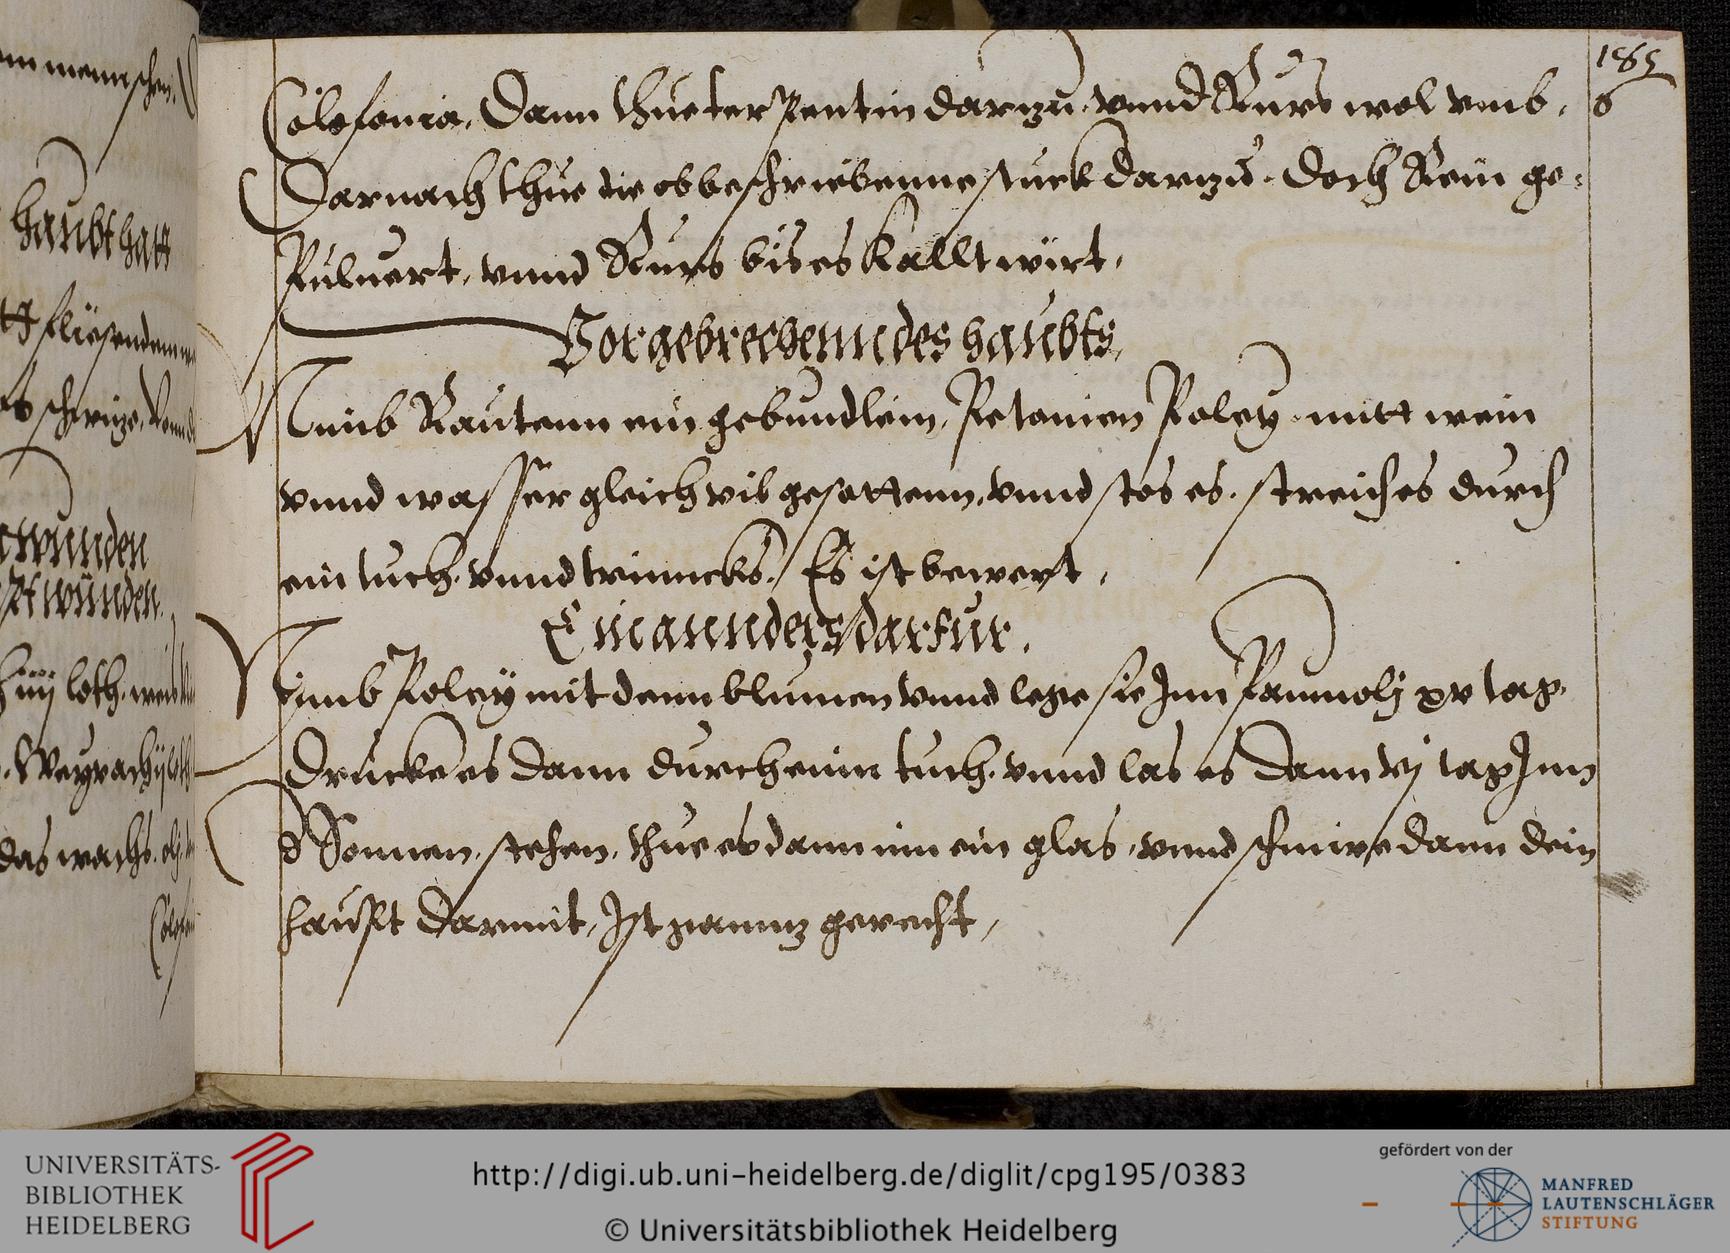 185
Colofonia, Dann thue terpentin darzu, vnnd Rurs wol vmb, 6
Darnach thue die obbeschriebenne stuck darzu. doch klein ge-
puluert, vnnd Rurs bis es kallt wirt,
Vor gebrechenn des haubts,
Nimb Rautenn ein gebundlein, Petonien Poley mitt wein
vnnd wasser gleich vil gesottenn, vnnd stos es. streich es durch
ein tuch. vnnd trinncks. Es ist bewert,
Ein annders darfur.
Nimb Poley mit denn blumen vnnd lege sie Inn Paumolj xv tag.
Drucke es dann durch einn tuch. vnnd las es dann vj tag Inn
d Sonnen stehen, thue es dann inn ein glas, vnnd schmire dann dein
haupt darmit, Ist gannz gerecht,
menschen.
haubt hatt
wunden
wunden.
loth.
das wachs.
UNIVERSITÄTS-
BIBLIOTHEK
HEIDELBERG
http://digi.ub.uni-heidelberg.de/diglit/cpg195/0383
© Universitätsbibliothek Heidelberg
gefördert von der
MANFRED
LAUTENSCHLÄGER
STIFTUNG